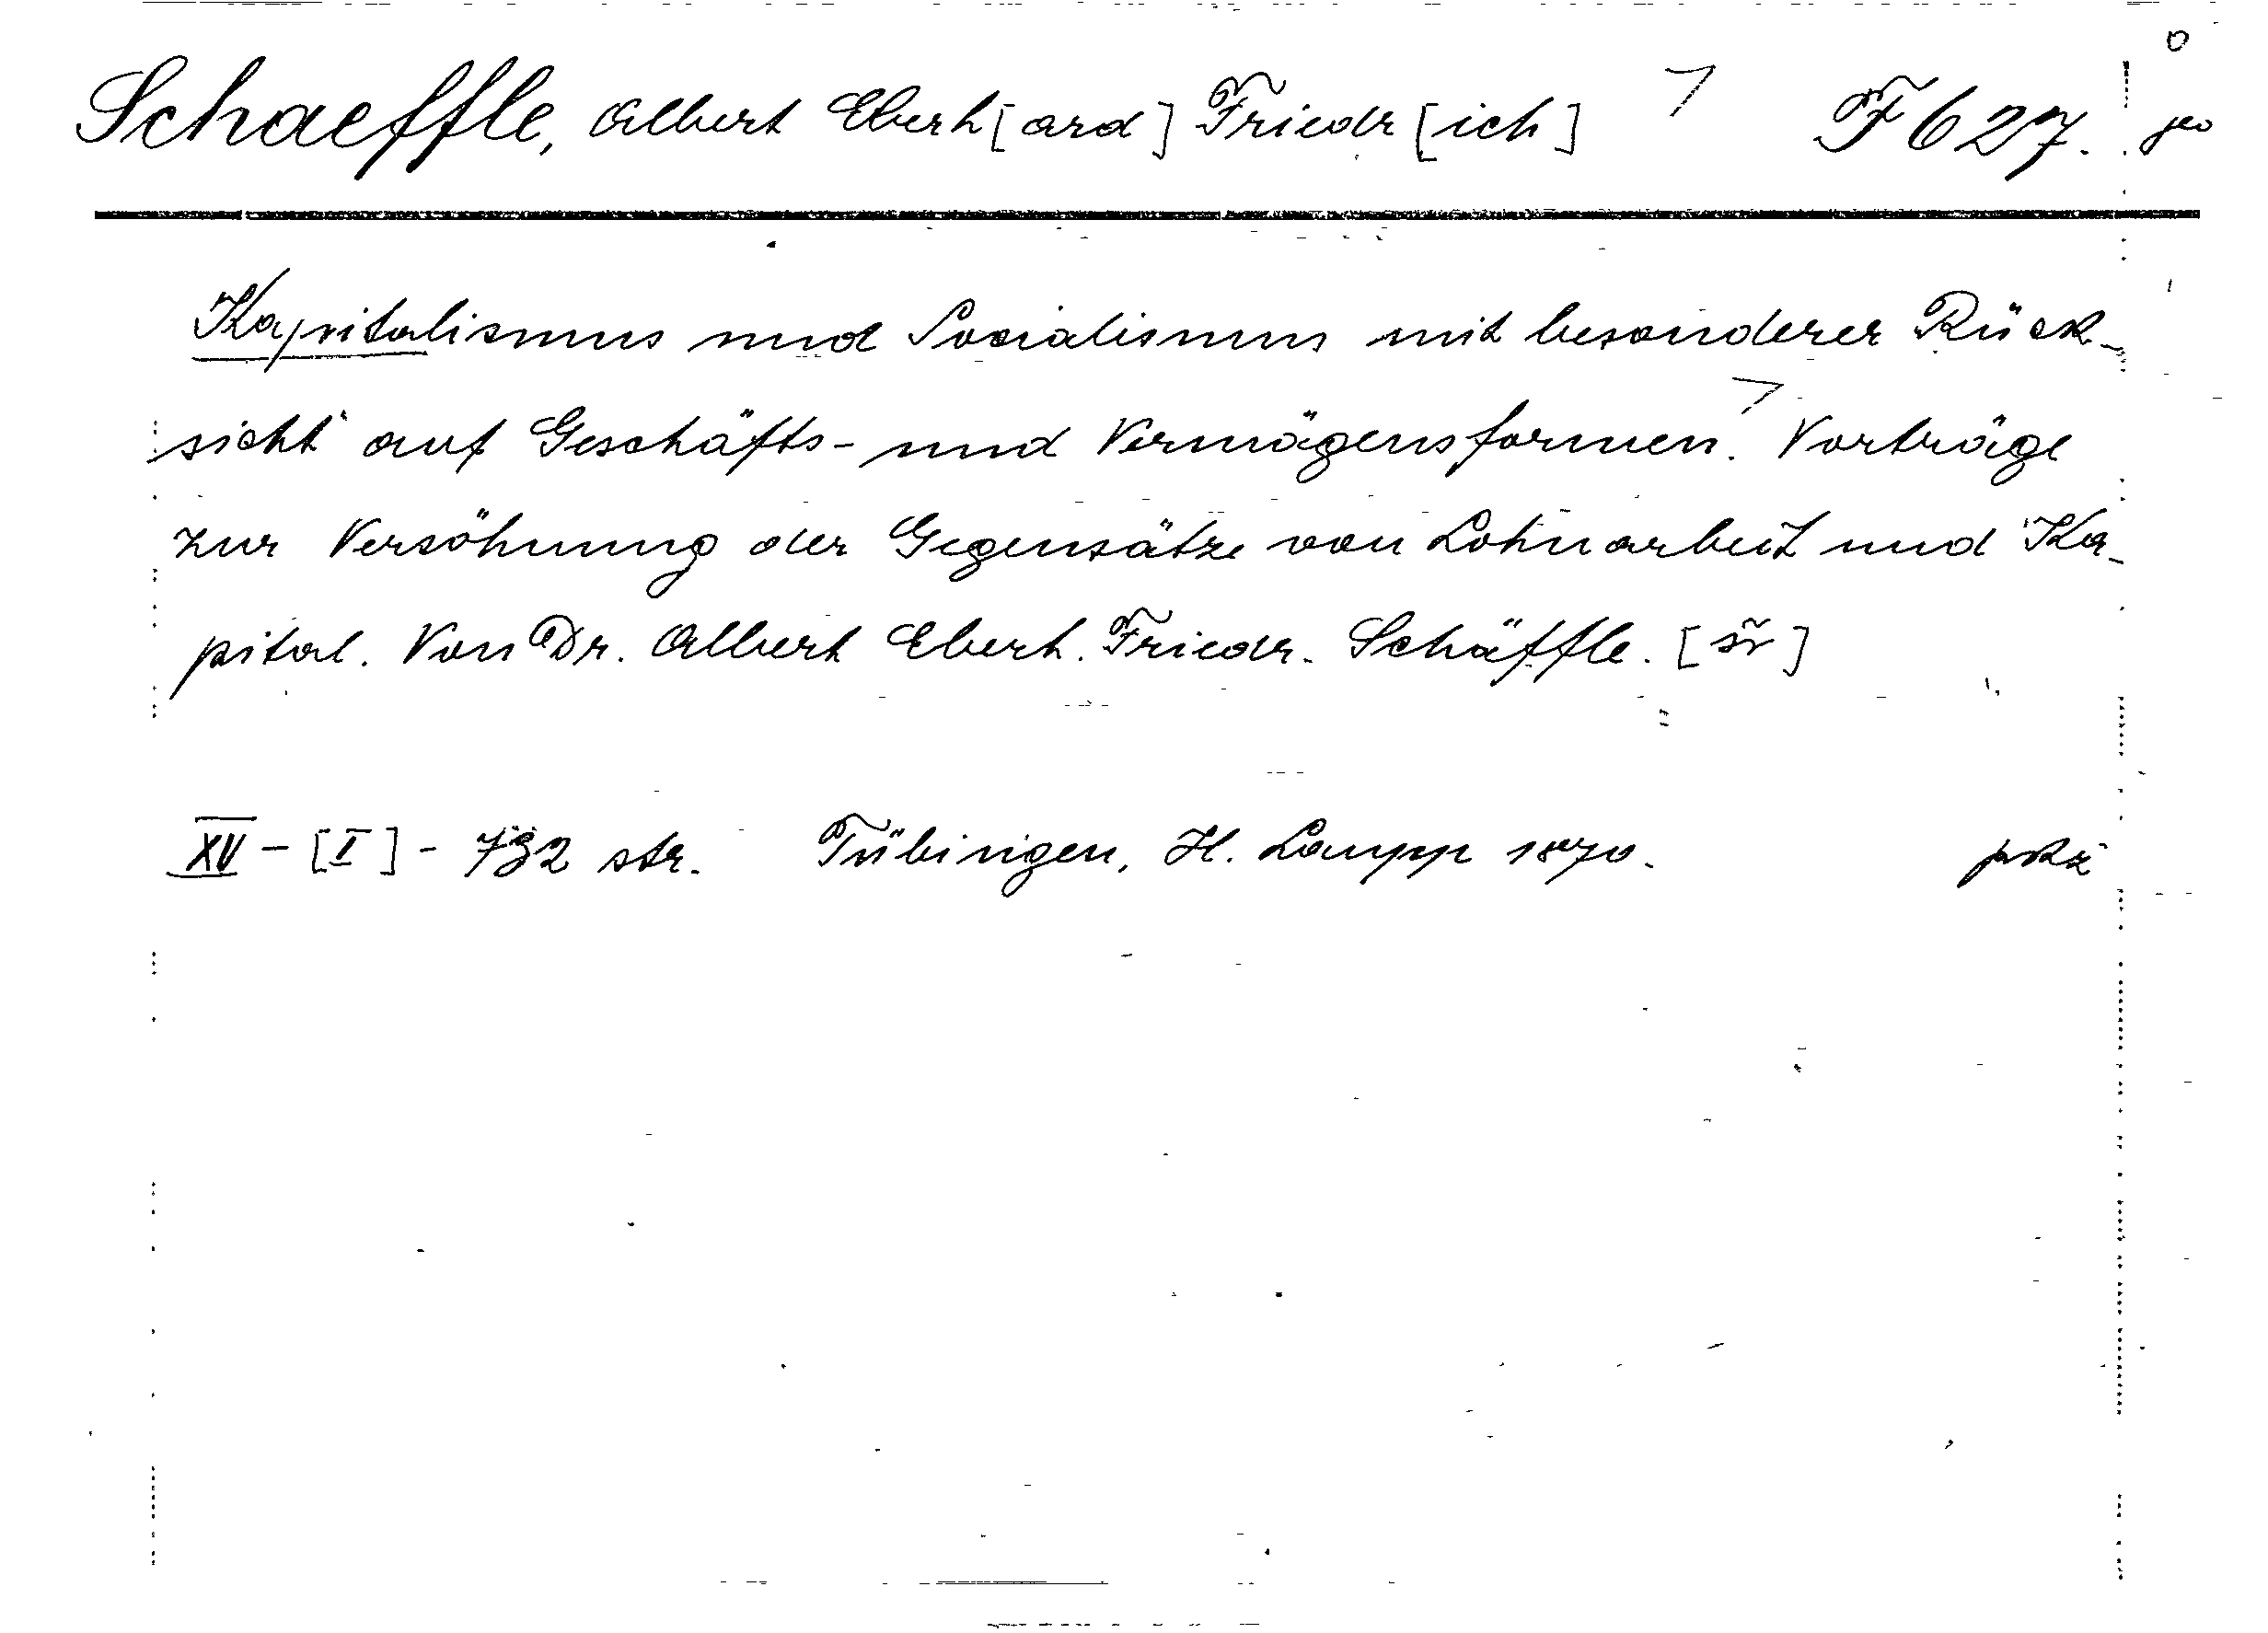 Schaeffle, Albert Eberh[ard] Friedr[ich] F 627.
Kapitalismus und Socialismus mit besonderer Rück-
sicht auf Geschäfts- und Vermögensformen. Vorträge
zur Versöhnung der Gegensätze von Lohnarbeit und Ka-
pital. Von Dr. Albert Eberh. Friedr. Schäffle.
XV - [I] - 732 str. Tübingen, H. Laupp 1870.